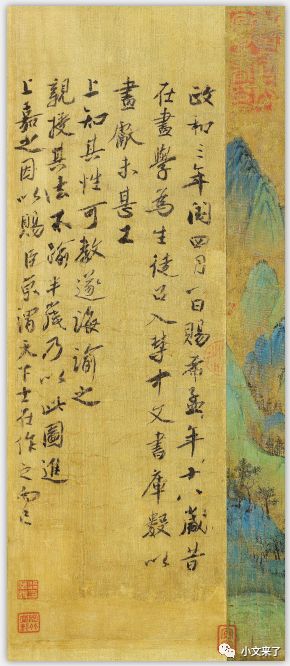 政和三年闰四月一日賜希孟年十八歲昔
在畫學為生徒召入禁中文書庫數以
畫獻未甚工
上知其性可教遂誨諭之
親授其法不踰半歲乃以此圖進
上嘉之因以賜臣京謂天下士在作之而已
小文来了